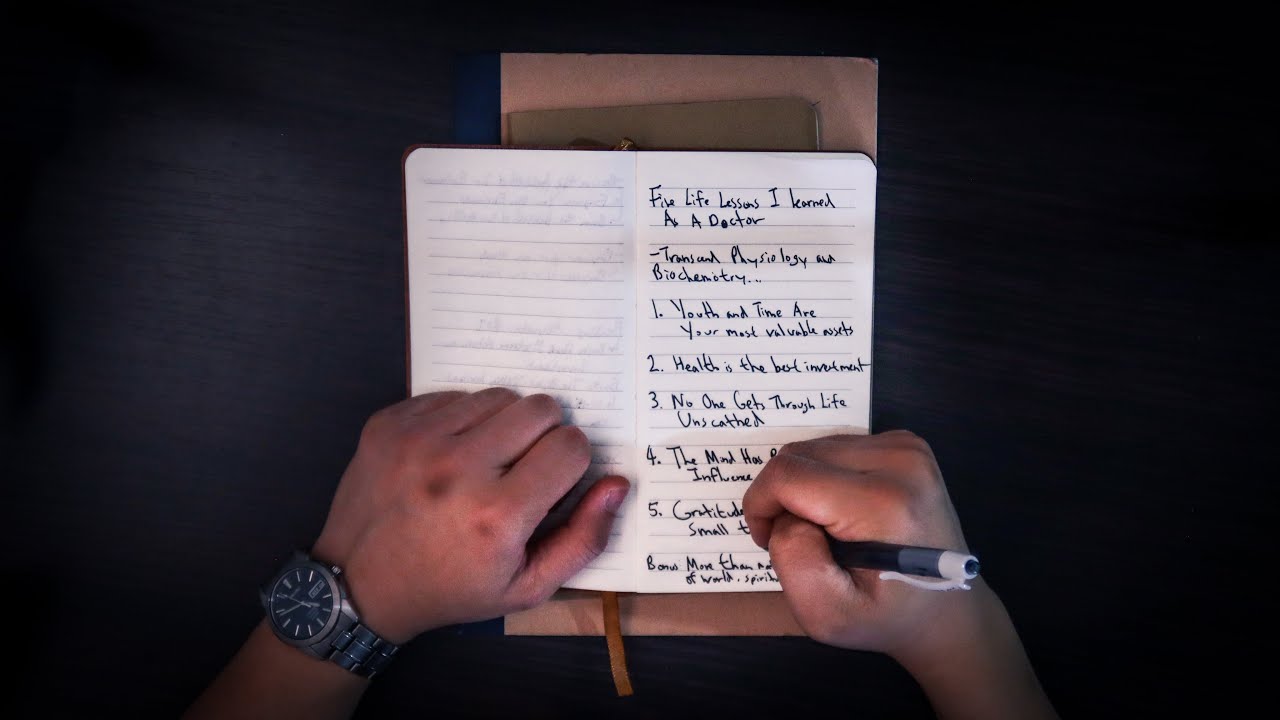 Five Life Lessons I learned
As A Doctor
-Transcend Physiology and
Biochemistry...
1. Youth and Time Are
Your most valuable assets
2. Health is the best investment
3. No One Gets Through Life
Unscathed
4. The Mind Has
Influence
5. Gratitude
Small
Bonus More than
of world.